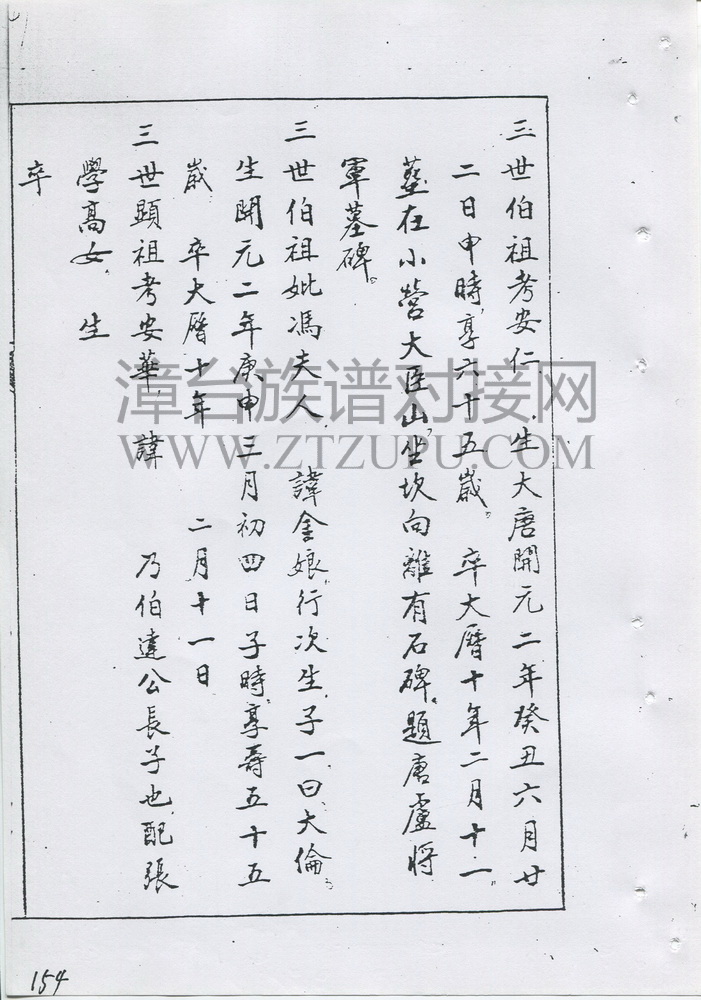 三世伯祖考安仁．生大唐開元二年癸丑六月廿
二日申時，享六十五歲。卒大曆十年二月十一。
墓在小營大臣山，坐坎向離有石碑，題唐盧將
軍墓碑。
三世伯祖妣馮夫人．諱金娘，行次生，子一．曰大倫，
生開元二年庚申三月初四日子時，享壽五十五
歲 卒大曆十年 二月十一日
三世顯祖考安華，諱 乃伯達公長子也，配張
學高女，生
卒
漳台族谱对接网
WWW.ZTZUPU.COM
154